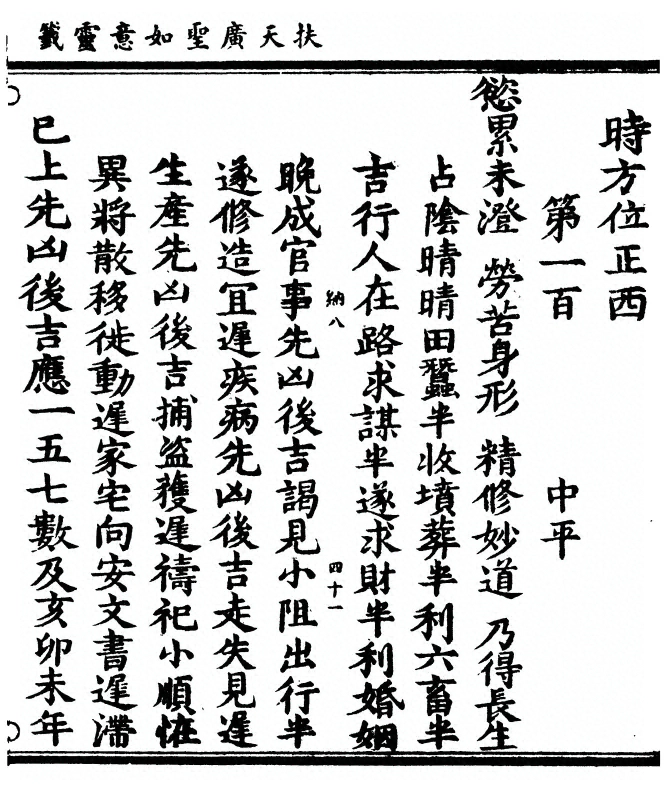 扶天廣聖如意靈籤
時方位正西
第一百 中平
慾累未澄 勞苦身形 精修妙道 乃得長生
占陰晴晴田蠶半收墳葬半利六畜半
吉行人在路求謀半遂求財半利婚姻
納八 四十一
晚成官事先凶後吉謁見小阻出行半
遂修造冝遲疾病先凶後吉走失見遲
生產先凶後吉捕盜獲遲禱祀小順恠
異將散移徙動遲家宅向安文書遲滯
已上先凶後吉應一五七數及亥卯未年